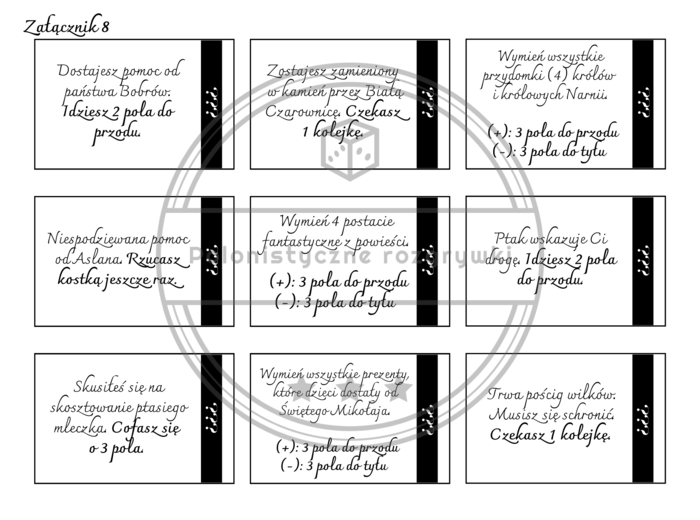 Załącznik 8
Dostajesz pomoc od
państwa Bobrów.
Idziesz 2 pola do
przodu.
???
Zostajesz zamieniony
w kamień przez Białą
Czarownicę. Czekasz
1 kolejkę.
???
Wymień wszystkie
przydomki (4) królów
i królowych Narnii.
(+): 3 pola do przodu
(-): 3 pola do tyłu
???
Niespodziewana pomoc
od Aslana. Rzucasz
kostką jeszcze raz.
???
Wymień 4 postacie
fantastyczne z powieści.
(+): 3 pola do przodu
(-): 3 pola do tyłu
???
Ptak wskazuje Ci
drogę. Idziesz 2 pola
do przodu.
???
Polonistyczne rozgrywki
Skusiłeś się na
skosztowanie ptasiego
mleczka. Cofasz się
o 3 pola.
???
Wymień wszystkie prezenty,
które dzieci dostały od
Świętego Mikołaja.
(+): 3 pola do przodu
(-): 3 pola do tyłu
???
Trwa pościg wilków.
Musisz się schronić.
Czekasz 1 kolejkę.
???